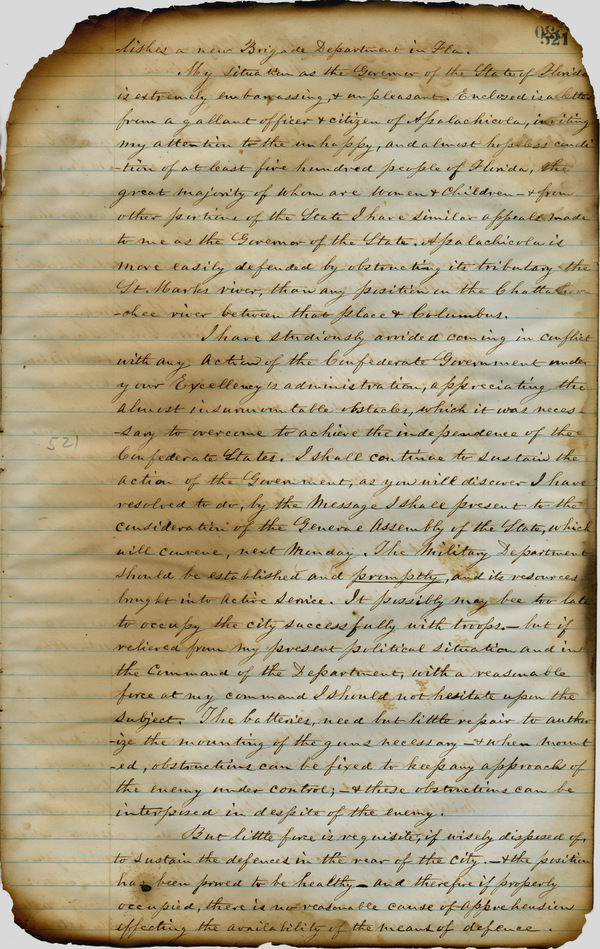 521
lishes a new Brigade Department in Fla.
My situation as the Governor of the State of Florida
is extremely embarrassing, & unpleasant. Enclosed is a letter
from a gallant officer & citizen of Apalachicola, inviting
my attention to the unhappy, and almost hopeless condi-
-tion of at least five hundred people of Florida, the
great majority of whom are Women & Children - & from
other portions of the State I have similar appeals made
to me as the Governor of the State. Apalachicola is
more easily defended by obstructing its tributary the
St. Marks river, than any position on the Chattahoo-
-chee river between that place & Columbus.
I have studiously avoided coming in conflict
with any Action of the Confederate Government under
your Excellency's administration, appreciating the
almost insurmountable obstacles, which it was neces-
-sary to overcome to achieve the independence of the
Confederate States. I shall continue to sustain the
action of the Government, as you will discover I have
resolved to do, by the Message I shall present to the
consideration of the General Assembly of the State, which
will convene, next Monday. The Military Department
should be established and promptly, and its resources
brought into active service. It possibly may bee too late
to occupy the city successfully with troops. - but if
relieved from my present political situation and in
the Command of the Department, with a reasonable
force at my command I should not hesitate upon the
subject. The batteries, need but little repair to author
-ize the mounting of the guns necessary - & when mount
-ed, obstructions can be fixed to keep any approach of
the enemy under control; - & these obstructions can be
interposed in despite of the enemy.
But little force is requisite, if wisely disposed of,
to sustain the defences in the rear of the city. - & the position
has been proved to be healthy - and therefore if properly
occupied, there is no reasonable cause of apprehension
effecting the availability of the means of defence.
521